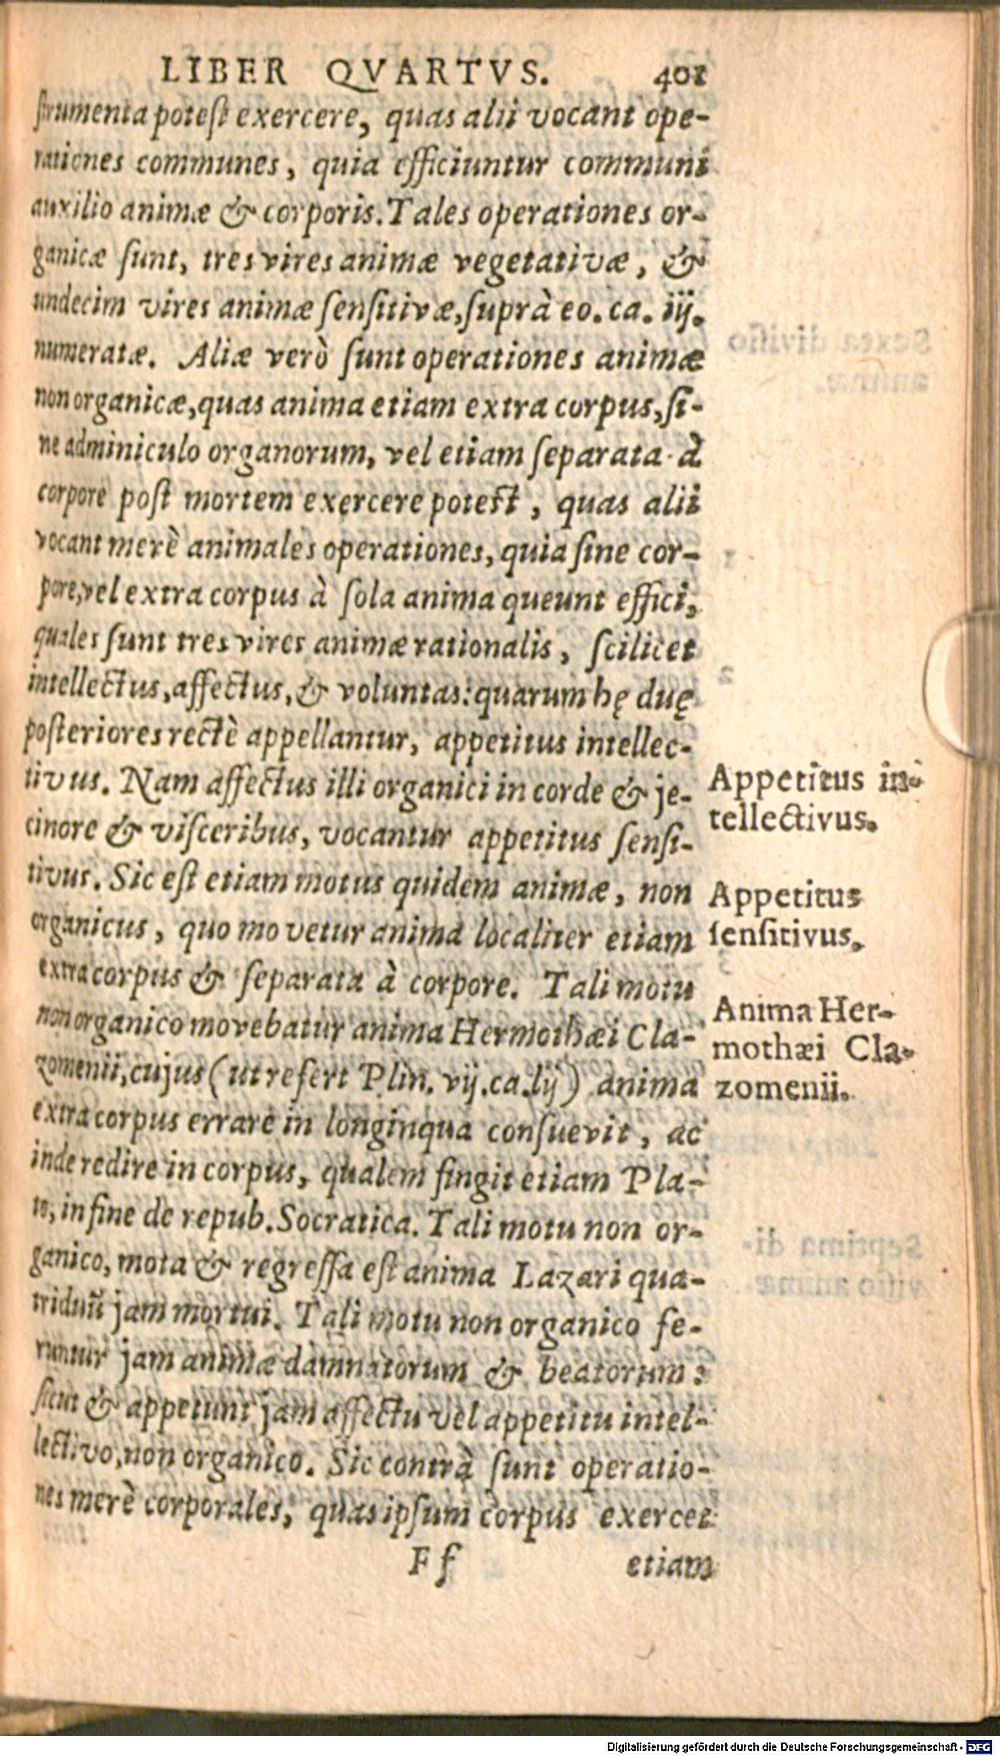 LIBER QVARTVS. 401
strumenta potest exercere, quas alii vocant ope-
rationes communes, quia efficiuntur communi
auxilio animæ & corporis. Tales operationes or-
ganicæ sunt, tres vires animæ vegetativæ, &
undecim vires animæ sensitivæ, suprà eo. ca. iij.
numeratæ. Aliæ verò sunt operationes animæ
non organicæ, quas anima etiam extra corpus, si-
ne adminiculo organorum, vel etiam separata à
corpore post mortem exercere potest, quas alii
vocant merè animales operationes, quia sine cor-
pore, vel extra corpus à sola anima queunt effici,
quales sunt tres vires animæ rationalis, scilicet
intellectus, affectus, & voluntas: quarum hę duę
posteriores rectè appellantur, appetitus intellec-
tivus. Nam affectus illi organici in corde & je-
cinore & visceribus, vocantur appetitus sensi-
tivus. Sic est etiam motus quidem animæ, non
organicus, quo movetur anima localiter etiam
extra corpus & separata à corpore. Tali motu
non organico movebatur anima Hermothæi Cla-
zomenii, cujus (ut refert Plin. vij. ca. lij) anima
extra corpus errare in longinqua consuevit, ac
inde redire in corpus, qualem fingit etiam Pla-
to, in fine de repub. Socratica. Tali motu non or-
ganico, mota & regressa est anima Lazari qua-
triduū jam mortui. Tali motu non organico fe-
runtur jam animæ damnatorum & beatorum:
sicut & appetunt jam affectu vel appetitu intel-
lectivo, non organico. Sic contrà sunt operatio-
nes merè corporales, quas ipsum corpus exercet
Ff etiam
Appetitus in-
tellectivus.
Appetitus
sensitivus.
Anima Her-
mothæi Cla-
zomenii.
Digitalisierung gefördert durch die Deutsche Forschungsgemeinschaft - DFG